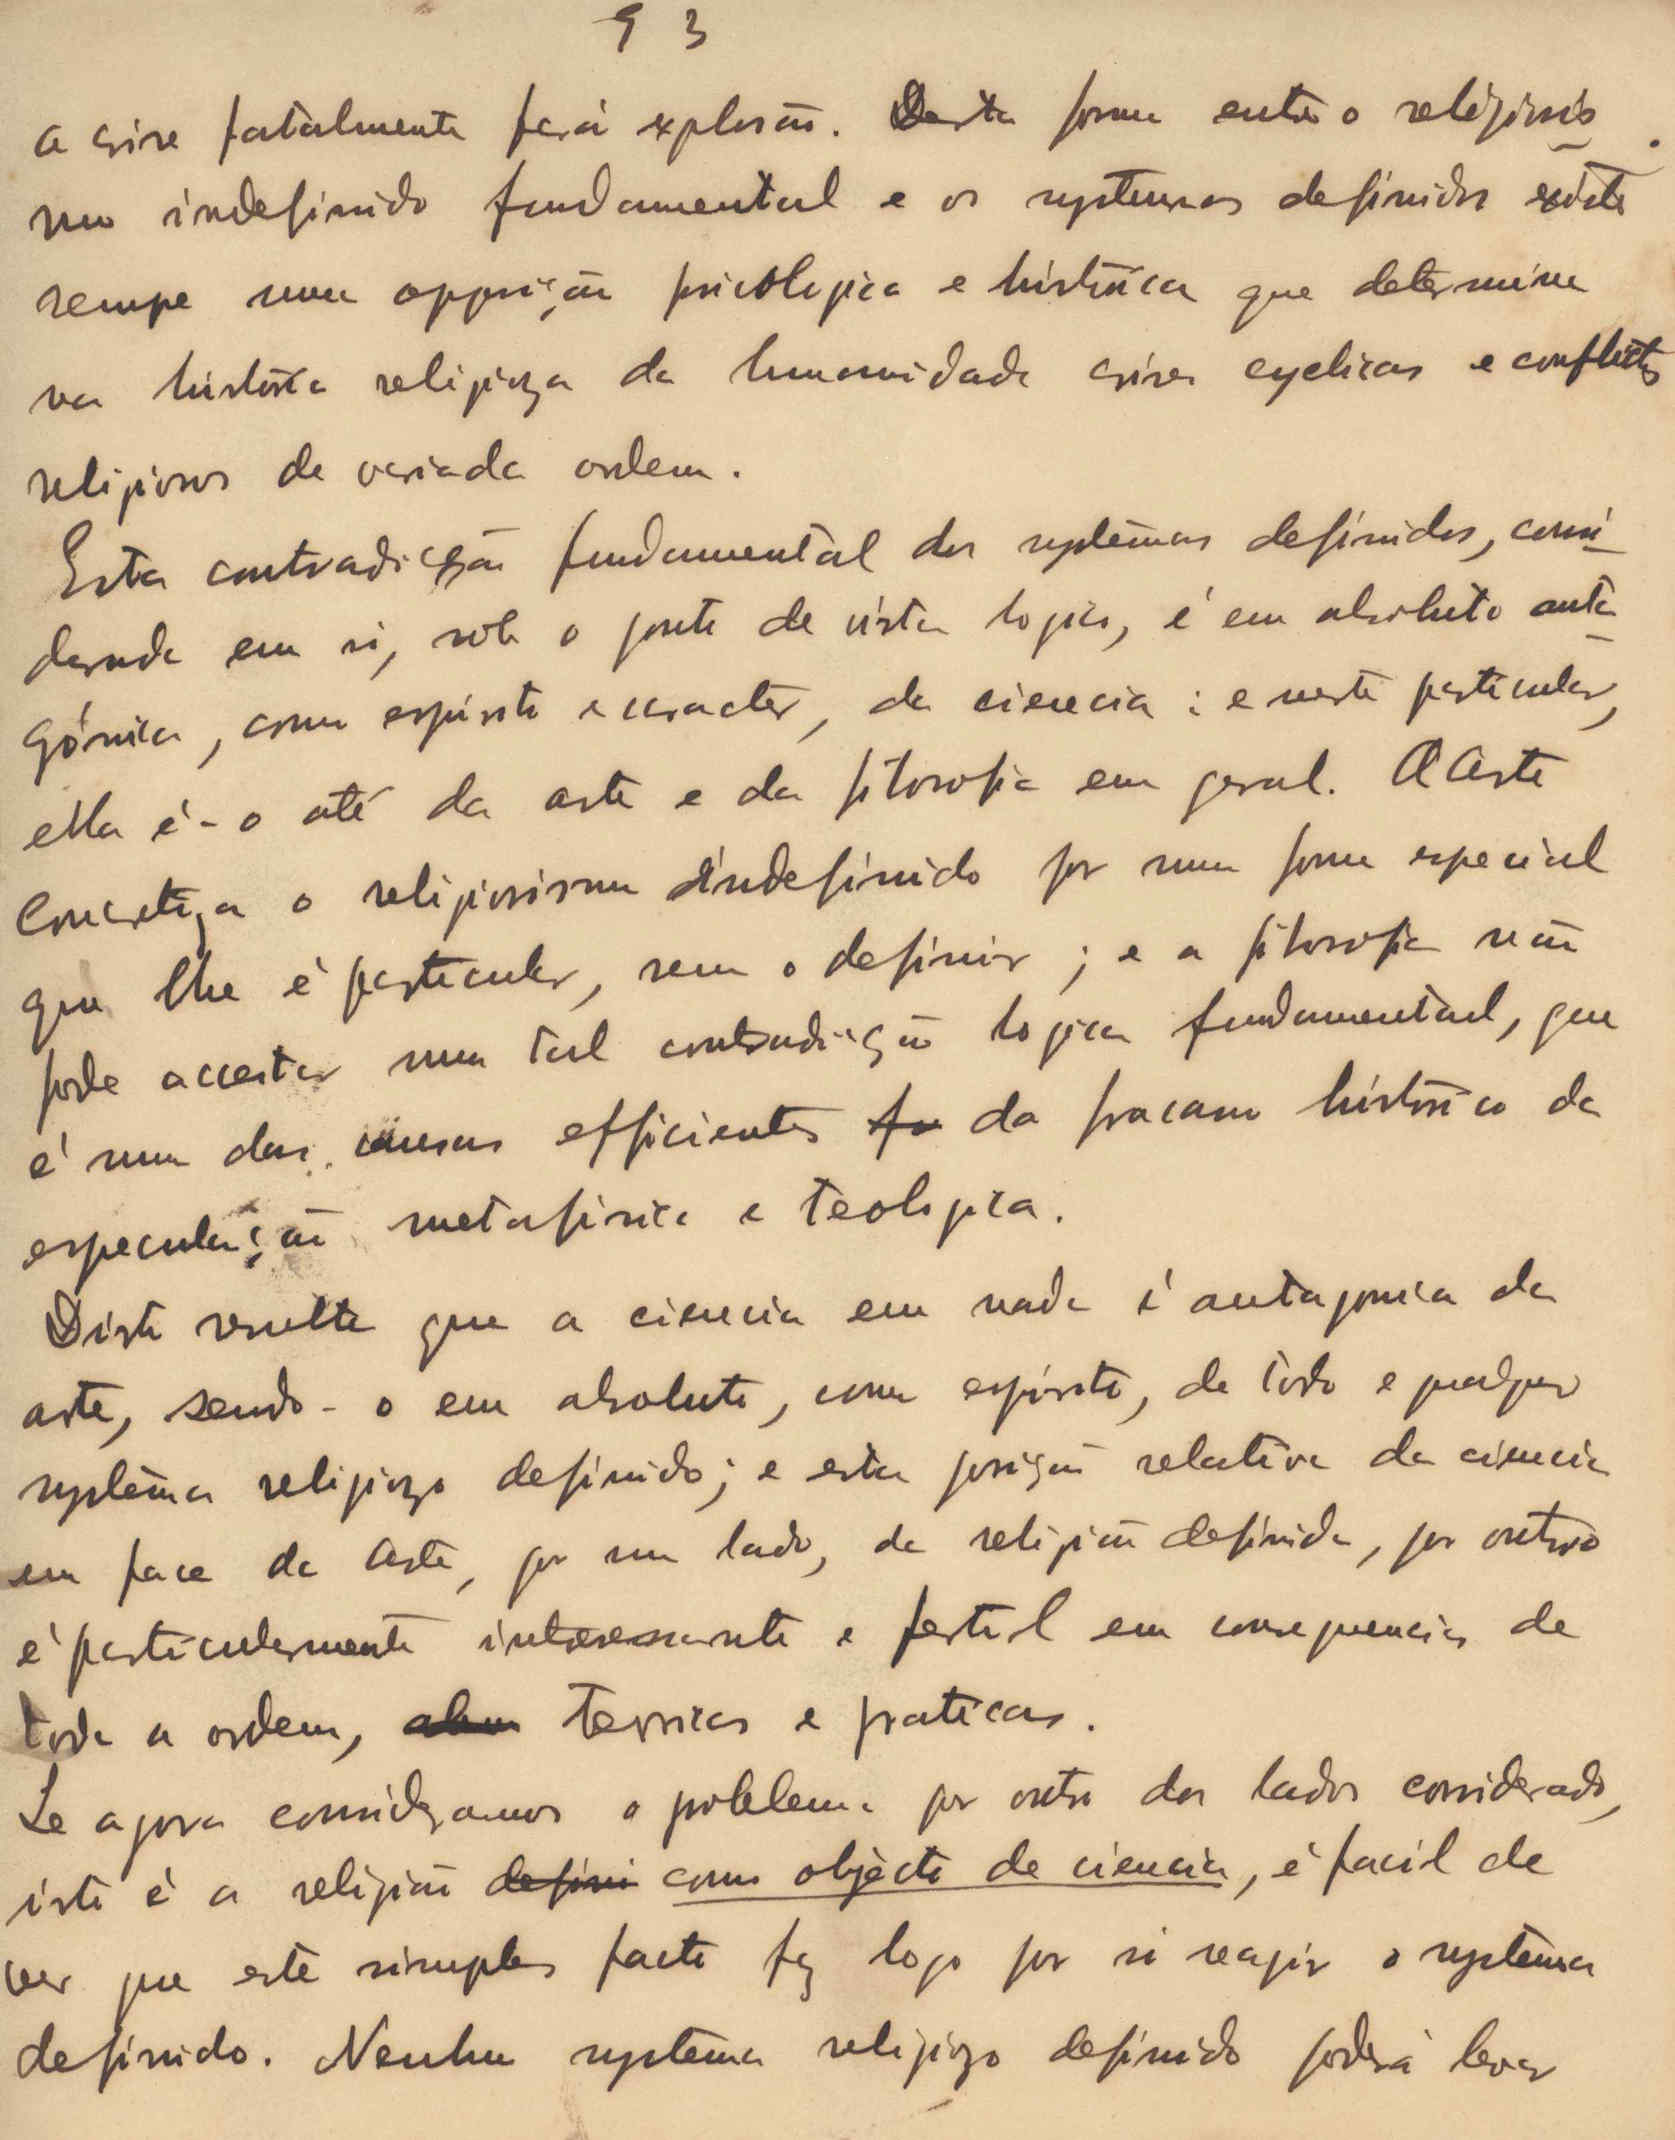 93
a crise fatalmente fará explosão. Desta forma entre o religiosis
mo indefinido fundamental e os systemas definidos existe
sempre uma opposição psicologica e histórica que determina
na história religioza da humanidade crises cyclicas e conflictos
religiosos de variada ordem.
Esta contradicção fundamental dos systêmas definidos, consi-
derada em si, sob o ponto de vista logico, é em absoluto anta-
gónica, como espirito e caracter, da ciencia: e neste particular,
ella é-o até da arte e da filosofia em geral. A Arte
concretiza o religiosismo indefinido por uma forma especial
que lhe é particular, sem o definir; e a filosofia não
pode acceitar uma tal contradicção logica fundamental, que
é uma das causas efficientes do fracasso histórico da
especulação metafisica e teologica.
Disto resulta que a ciencia em nada é antagonica da
arte, sendo-o em absoluto, como espirito, de todo e qualquer
systêma religiozo definido; e esta posição relativa da ciencia
em face da Arte, por um lado, da religião definida, por outro
é particularmente interessante e fertil em consequencias de
toda a ordem, teoricas e praticas.
Se agora consideramos o problema por outro dos lados considerado,
isto é a religião defini como objècto de ciencia, é facil de
ver que este simples facto fez logo por si reagir o systêma
definido. Nenhum systema religiozo definido poderá levar